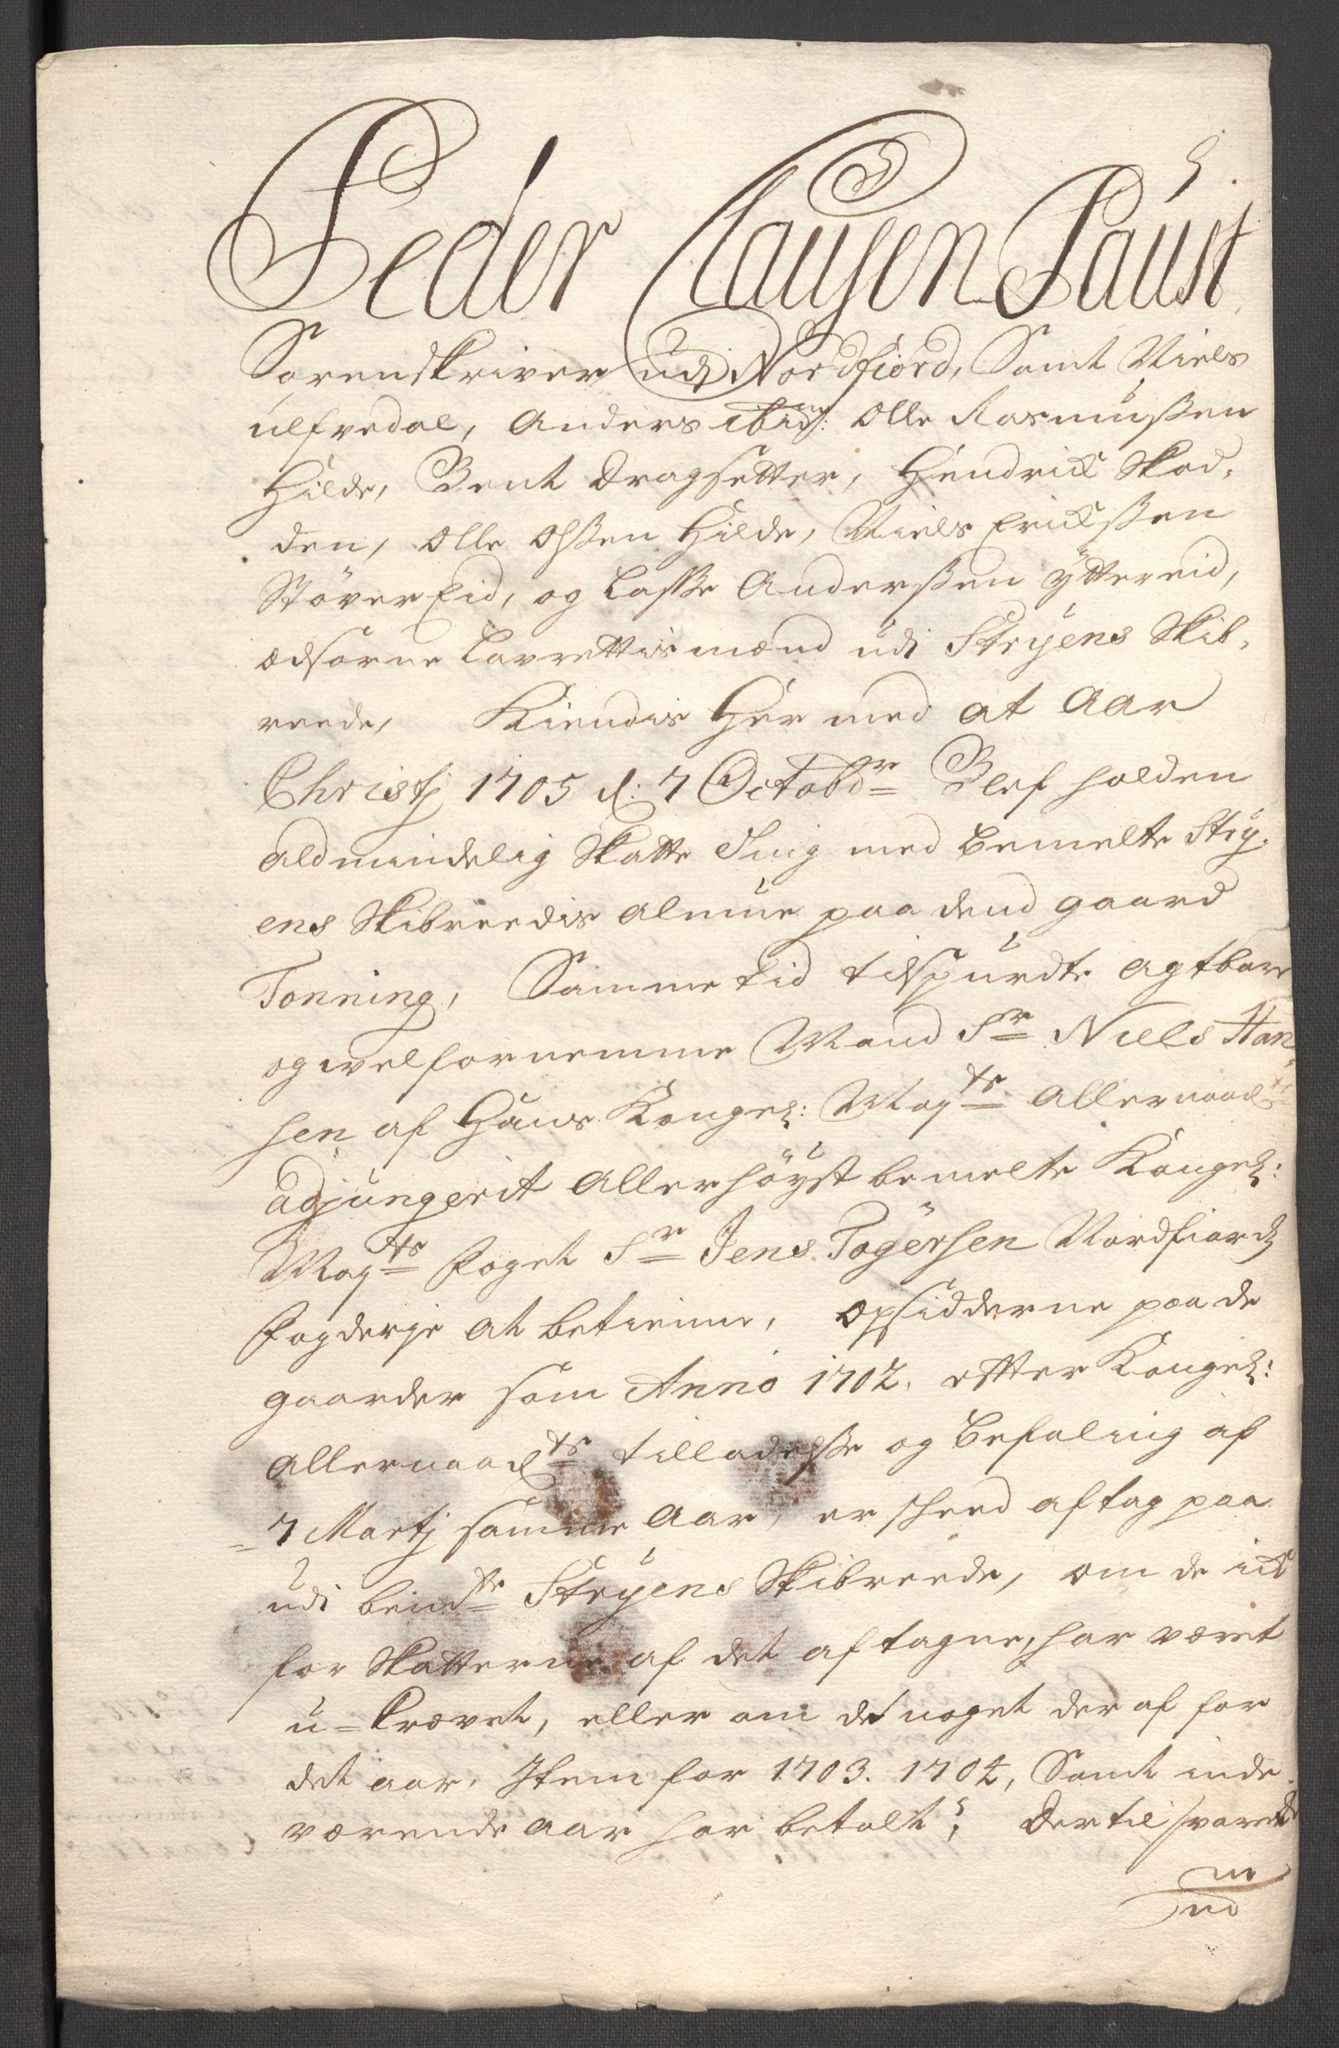 Peder Clausen Paust
Sorenskriver udj Nordfiord, Samt Niels
ulfvedal, Anders ibid: Olle Rasmussen
Hilde, Bent Dragsetter, Hendrick Skod-
den, Olle Olssen Hilde, Niels Erickssen
Støver Eid, og Lasse Anderssen ÿttereid,
ædsorne Laurettismænd udi Strÿens Skib-
reede, Kiendis Her med at Aar
Christj 1705 d: 7 Octobr Blef holden
aldmindelig Skatte Ting med bemelte Strÿ-
ens Skibreedis almue paa dend gaard
Tonning, Samme tid tilspurdte agtbare
og welfornemme Mand Sr Niels Han-
sen af Hans Kongel: Mayts Allernaadst
adjungerit Allerhöyst bemelte Kongel:
Mayts foget Sr Jens Togersen Nordfiords
fogderje at betienne, opsidderne paa de
gaarder som Anno 1702. etter Kongel:
Allernaadste tilladelsse og befaling af
7 Martj samme Aar, er skeed aftag paa
udi bemte Strÿens Skibreede, om de ick
for Skatterne af det aftagne, har været
u-krævet, eller om de noget der af for
det aar, Item for 1703. 1704, Samt inde-
værende Aar har betalt; Dertil svarede